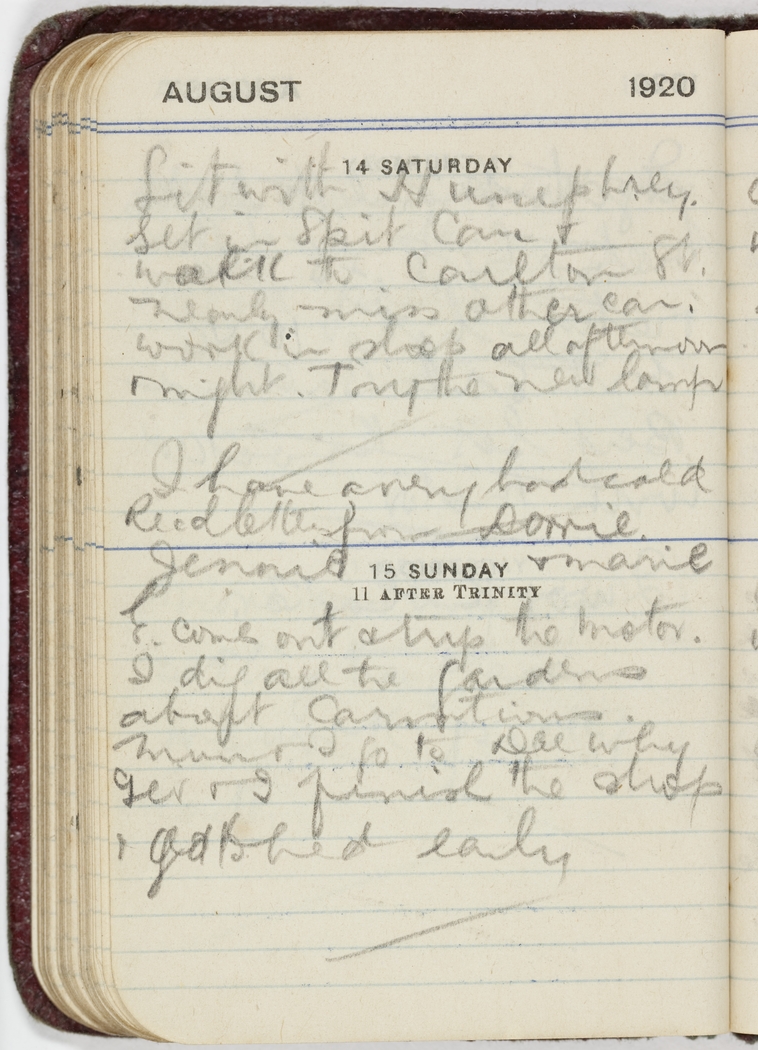 AUGUST 1920
14 SATURDAY
Sit with Humphrey.
Get in Spit Car &
walk to Carlton St.
nearly miss other car.
work in shop all afternoon
& night. Try the new lamp
I have a very bad cold
Recd letters from Dorrie.
Jennie & marie
15 SUNDAY
11 AFTER TRINITY
E. come out & trip the motor.
I dig all the Gardens
about Carnations.
Mum & I go to Dee why
Ger & I finish the shop
& got to bed early